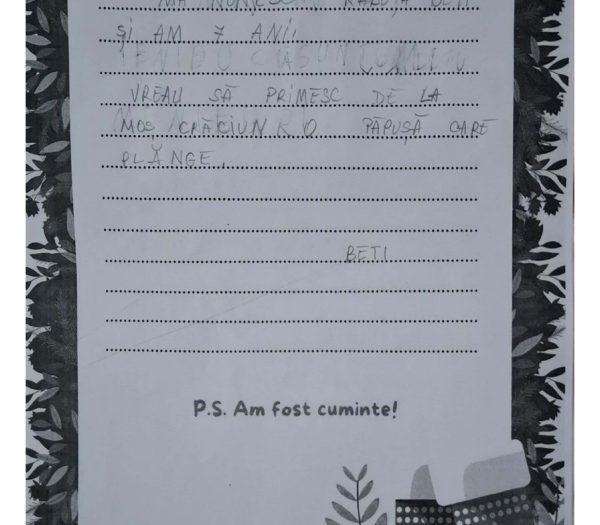 MĂ NUMESC RADUȚA BETI
ȘI AM 7 ANI!
VREAU SĂ PRIMESC DE LA
MOS CRĂCIUN O PĂPUȘĂ CARE
PLÂNGE.
BETI
P.S. Am fost cuminte!